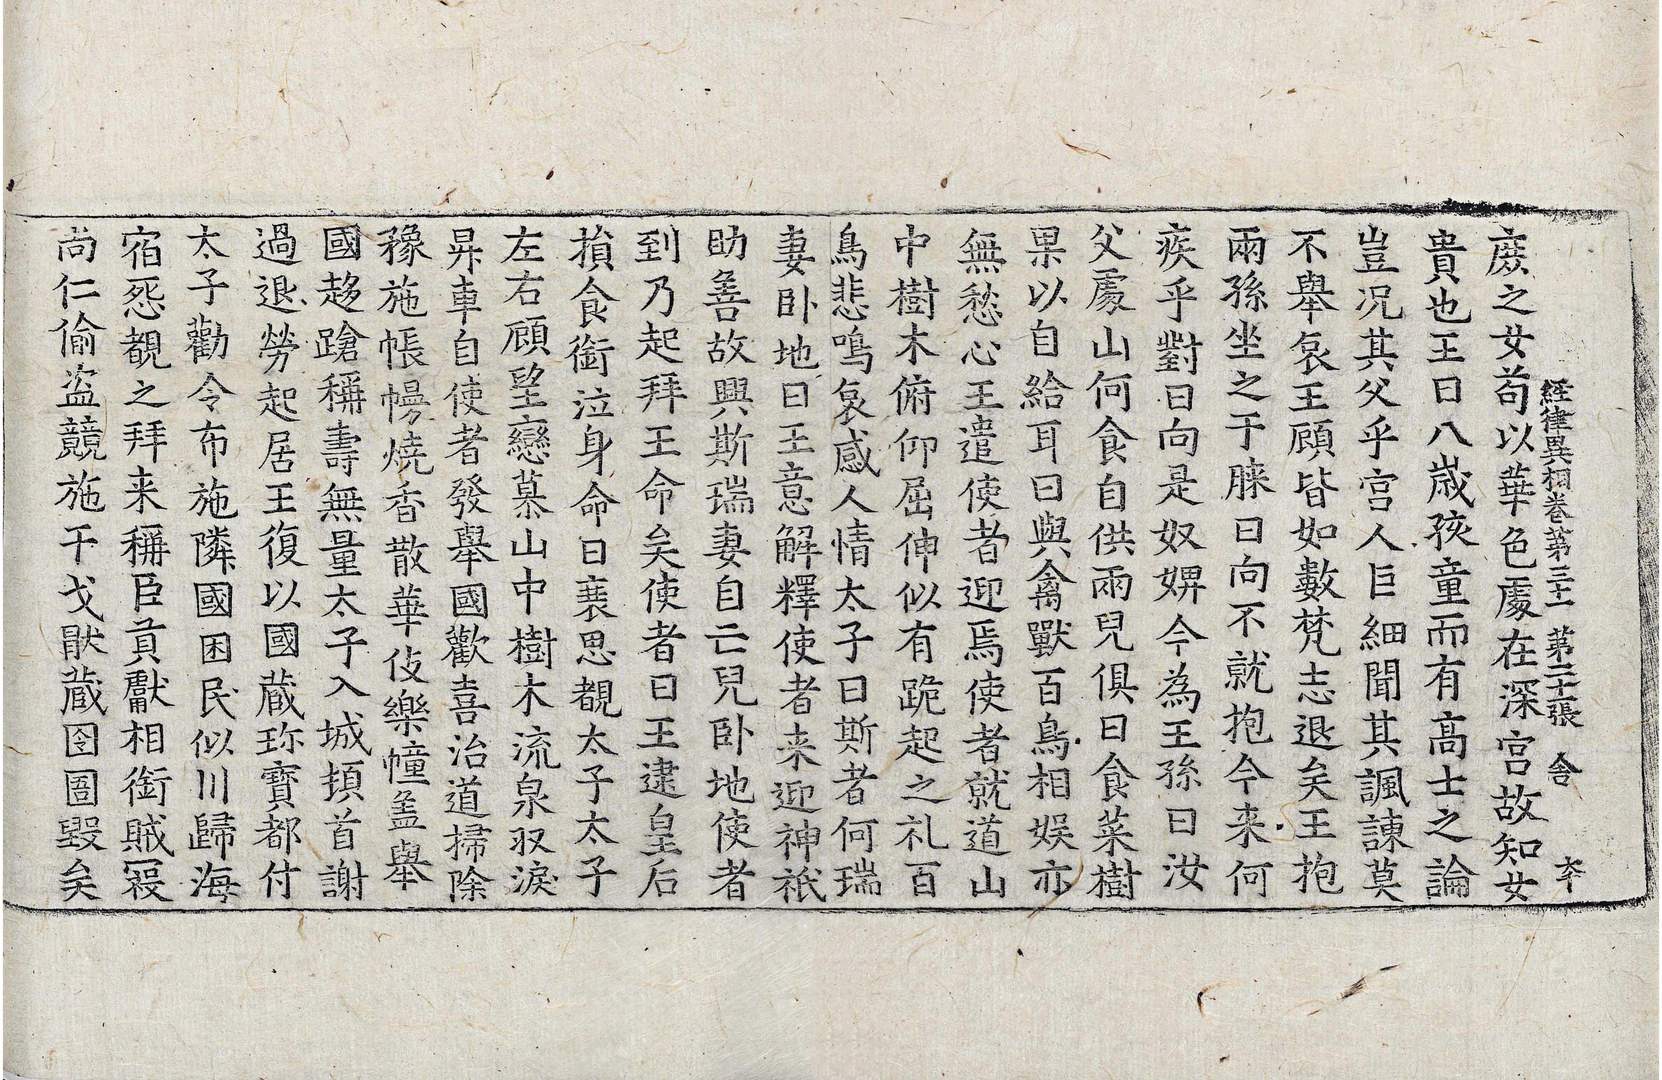 經律異相卷第三十一 第二十張 舍 大
庶之女苟以華色處在深宮故知女
貴也王曰八歲孩童而有高士之論
豈况其父乎宮人巨細聞其諷諫莫
不舉哀王顧皆如數梵志退矣王抱
兩孫坐之于膝曰向不就抱今来何
疾乎對曰向是奴婢今為王孫曰汝
父處山何食自供兩兒俱曰食菜樹
果以自給耳曰與禽獸百鳥相娱亦
無愁心王遣使者迎焉使者就道山
中樹木俯仰屈伸似有跪起之礼百
鳥悲鳴哀感人情太子曰斯者何瑞
妻卧地曰王意解釋使者来迎神祇
助善故興斯瑞妻自亡兒卧地使者
到乃起拜王命矣使者曰王逮皇后
損食銜泣身命日衰思覩太子太子
左右顧望戀慕山中樹木流泉収淚
昇車自使者發舉國歡喜治道掃除
豫施帳幔燒香散華伎樂幢盖舉
國趍蹌稱壽無量太子入城頓首謝
過退勞起居王復以國藏珎寶都付
太子勸令布施隣國困民似川歸海
宿怨覩之拜来稱臣貢獻相銜賊寇
尚仁偷盗競施干戈猒藏囹圄毀矣